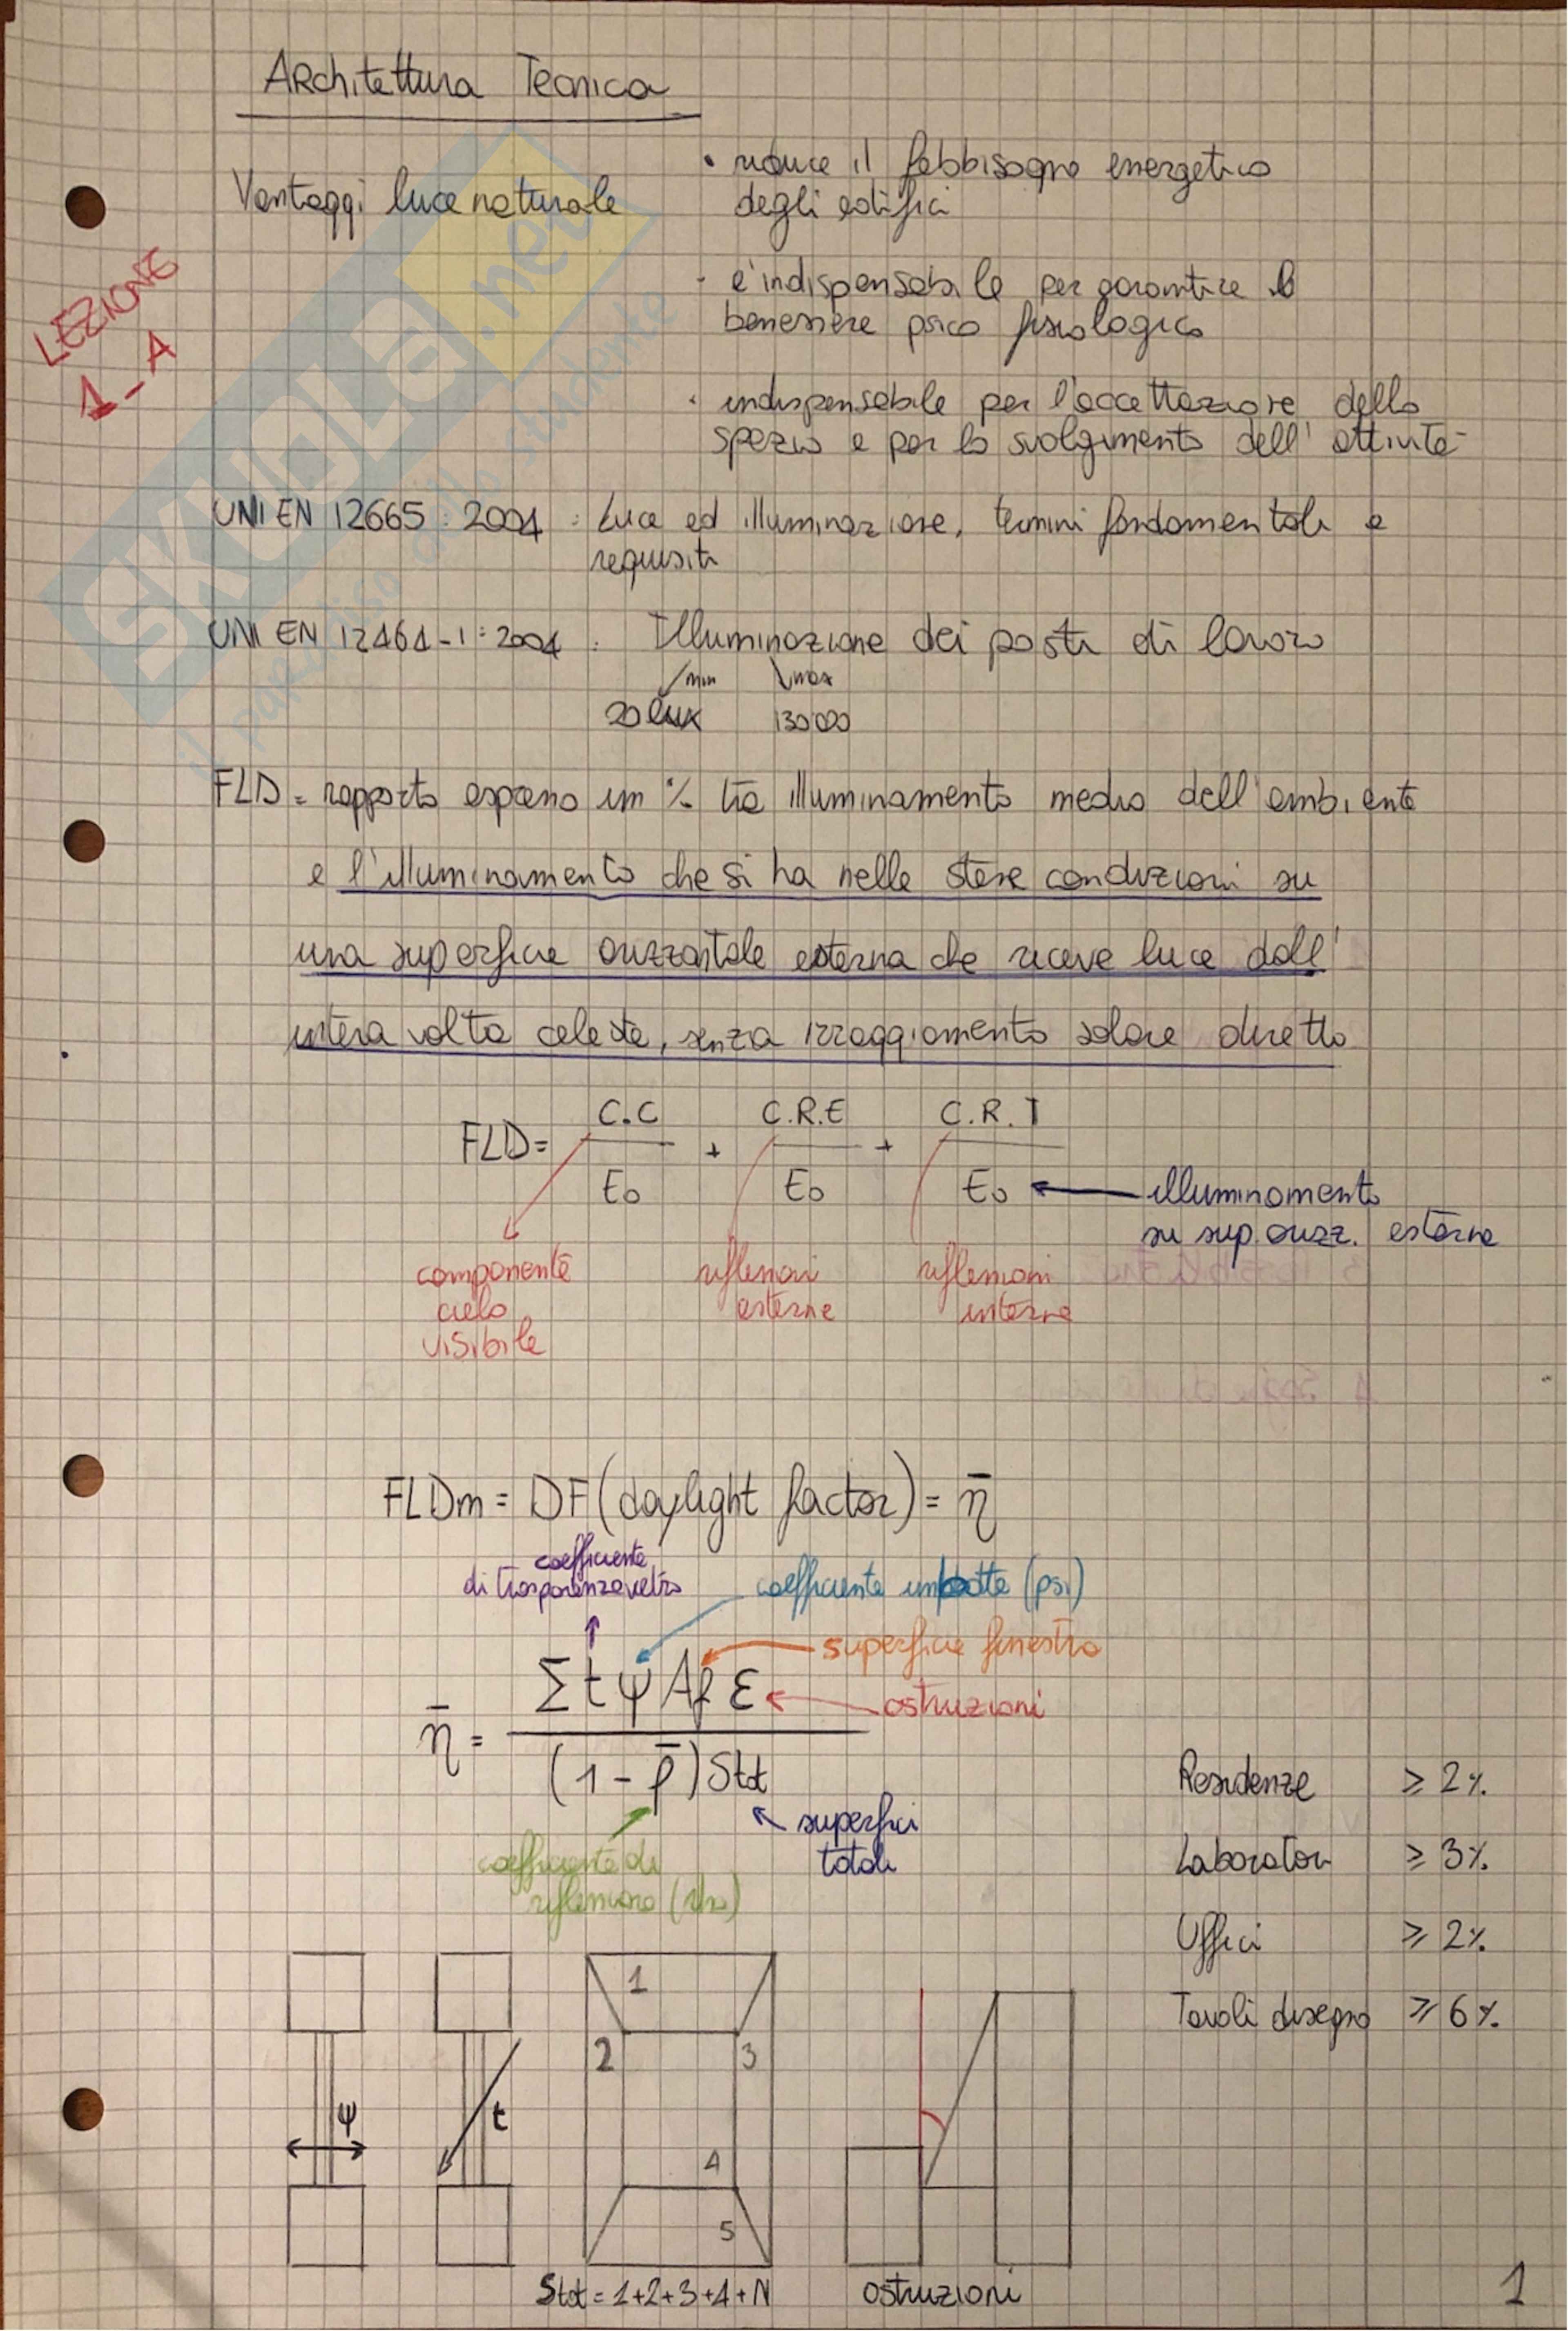 Architettura Tecnica
LEZIONE
1-A
Vantaggi luce naturale
• riduce il fabbisogno energetico
degli edifici
• è indispensabile per garantire il
benessere psico fisiologico
• indispensabile per l'accettazione dello
spazio e per lo svolgimento dell'attività
UNI EN 12665:2004: Luce ed illuminazione, termini fondamentali e
requisiti
UNI EN 12464-1:2004: Illuminazione dei posti di lavoro
min max
20 lux 130'000
FLD = rapporto espresso in % tra illuminamento medio dell'ambiente
e l'illuminamento che si ha nelle stesse condizioni su
una superficie orizzontale esterna che riceve luce dall'
intera volta celeste, senza irraggiamento solare diretto
FLD = C.C/E₀ + C.R.E/E₀ + C.R.I/E₀
illuminamento
su sup. orizz. esterne
componente
cielo
visibile
riflessioni
esterne
riflessioni
interne
FLDm = DF (daylight factor) = η̄
coefficiente
di trasparenza vetro
coefficiente imbotte (psi)
superficie finestra
ostruzioni
η̄ = Σ t ψ Af ε / (1 - ρ̄) Stot
superfici
totali
coefficiente di
riflessione (rho)
Residenze ≥ 2%
Laboratori ≥ 3%
Uffici ≥ 2%
Tavoli disegno ≥ 6%
ψ
t
1
2 3
4
5
Stot = 1+2+3+4+N
ostruzioni
1
SKUOLA.net
il paradiso dello studente